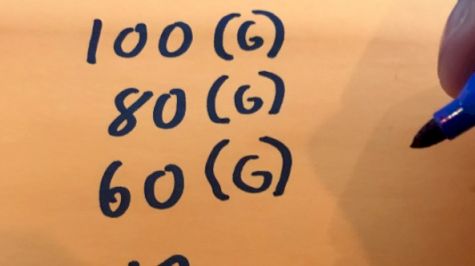 100 (G)
80 (G)
60 (G)